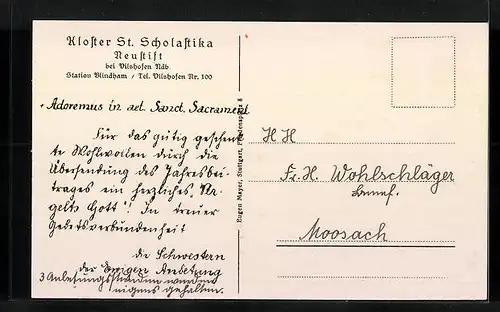 Kloster St. Scholastika
Neustift
bei Vilshofen Ndb.
Station Windham / Tel. Vilshofen Nr. 100
+ Adoremus in aet. Sanct. Sacrament.
Für das gütig geschenk-
te Wohlwollen durch die
Übersendung des Jahresbei-
trages ein herzliches "Ver-
gelts Gott"! In treuer
Gebetsverbundenheit
die Schwestern
der Ewigen Anbetung
3 Anbetungsstunden werden
eigens gehalten.
Eugen Mayer, Stuttgart,
H H
Fr. H. Wohlschläger
Moosach